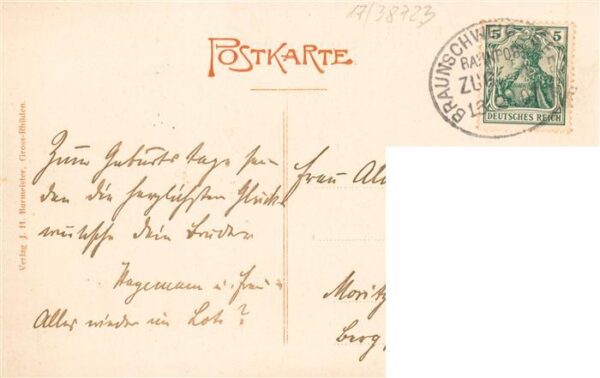 17/38723
POSTKARTE
BRAUNSCHWEIG
BAHNPOST
ZUG
5 5
DEUTSCHES REICH
Verlag J. H. Burmeister, Gross-Rhüden.
Zum Geburtstage sen
den die herzlichsten Glück
wünsche dein Bruder
Hagemann u. Frau
Alles wieder im Lot?
Frau
Moritz
Berg,